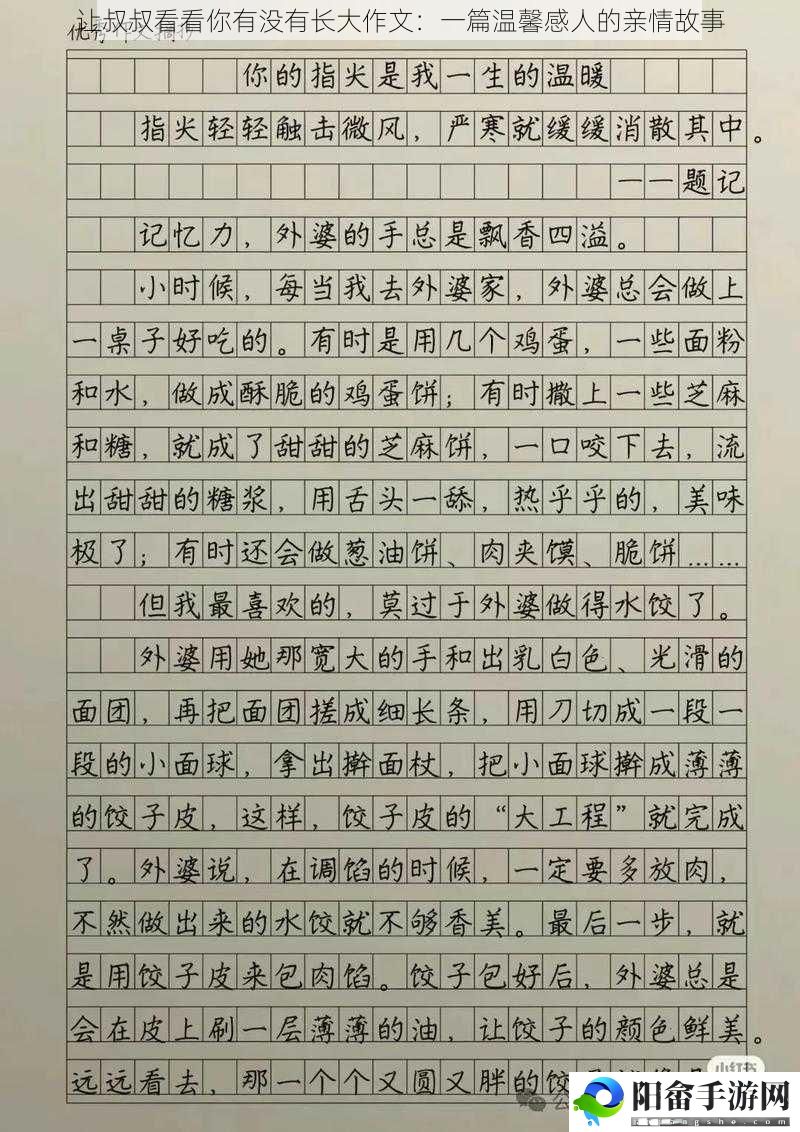 让叔叔看看你有没有长大作文：一篇温馨感人的亲情故事
优秀作文摘抄
你的指尖是我一生的温暖
指尖轻轻触击微风，严寒就缓缓消散其中。
——题记
记忆力，外婆的手总是飘香四溢。
小时候，每当我去外婆家，外婆总会做上
一桌子好吃的。有时是用几个鸡蛋，一些面粉
和水，做成酥脆的鸡蛋饼；有时撒上一些芝麻
和糖，就成了甜甜的芝麻饼，一口咬下去，流
出甜甜的糖浆，用舌头一舔，热乎乎的，美味
极了；有时还会做葱油饼、肉夹馍、脆饼……
但我最喜欢的，莫过于外婆做得水饺了。
外婆用她那宽大的手和出乳白色、光滑的
面团，再把面团搓成细长条，用刀切成一段一
段的小面球，拿出擀面杖，把小面球擀成薄薄
的饺子皮，这样，饺子皮的“大工程”就完成
了。外婆说，在调馅的时候，一定要多放肉，
不然做出来的水饺就不够香美。最后一步，就
是用饺子皮来包肉馅。饺子包好后，外婆总是
会在皮上刷一层薄薄的油，让饺子的颜色鲜美。
远远看去，那一个个又圆又胖的饺
小红书
公
阳畲手游网